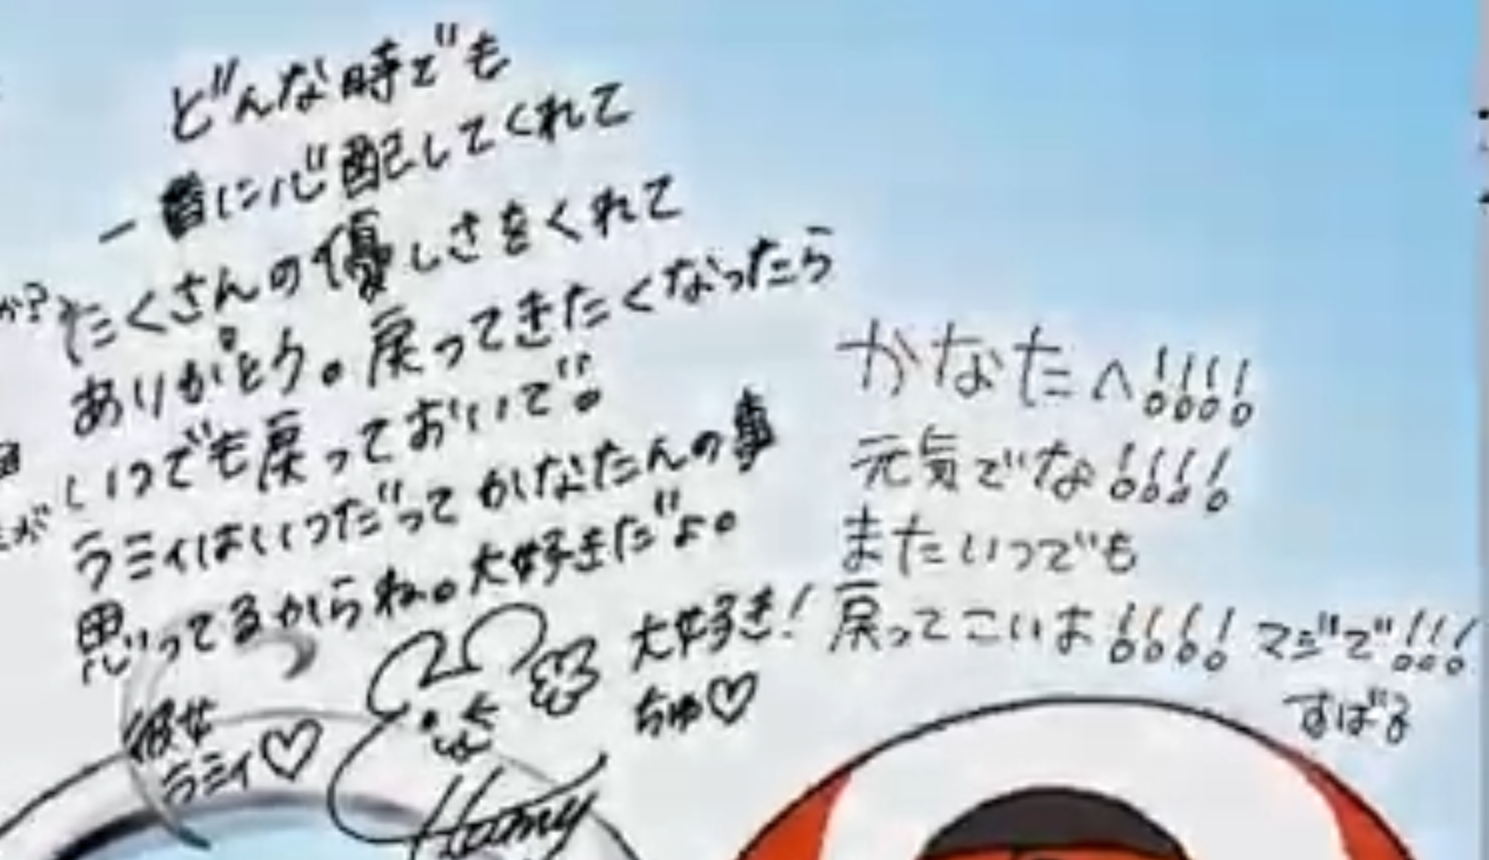 どんな時でも
一番に心配してくれて
たくさんの優しさをくれて
ありがとう。戻ってきたくなったら
いつでも戻っておいで!!
ラミィはいつだってかなたんの事
思ってるからね。大好きだよ。
彼女
ラミィ♡
大好き!
ちゅ♡
かなたへ!!!!
元気でな!!!!
またいつでも
戻ってこいよ!!!! マジで!!!
すばる
か?
が